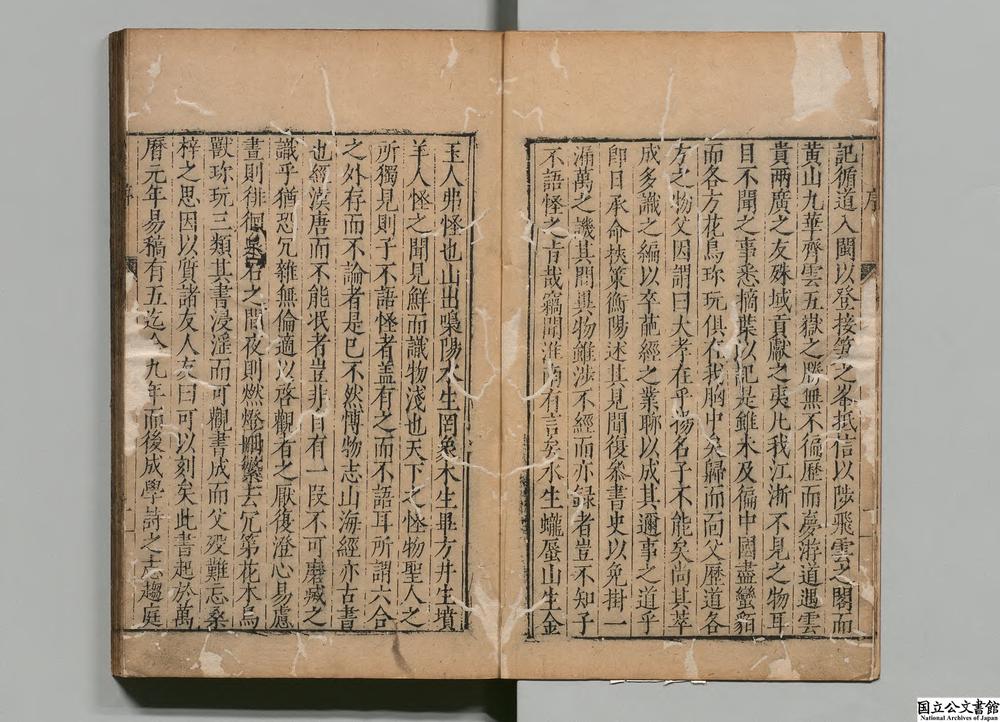 記循道入閩以登接筍之峯抵信以陟飛雲之閣而
黄山九華齊雲五嶽之勝無不徧歷而夢游道遇雲
貴兩廣之友殊域貢獻之夷凡我江淅不見之物耳
目不聞之事悉摘葉以記是雖未及徧中國盡蠻貊
而各方花鳥珎玩俱在我胸中矣歸而面父歷道各
方之物父因謂曰大孝在乎揚名子不能矣尚其萃
成多識之編以卒葩經之業聊以成其邇事之道乎
卽日承命挾策衡陽述其見聞復叅書史以免掛一
漏萬之譏其間異物雖涉不經而亦録者豈不知子
不語怪之肯哉竊聞淮南有言矣水生蠬蜃山生金
玉人弗怪也山出嘄陽水生罔象木生畢方井生墳
羊人怪之聞見鮮而識物淺也天下之怪物聖人之
所獨見則子不語怪者盖有之而不語耳所謂六合
之外存而不論者是已不然慱物志山海經亦古書
也經漢唐而不能泯者豈非自有一叚不可磨滅之
識乎猶恐冗雜無倫適以啓觀者之厭復澄心易慮
晝則徘徊泉石之間夜則燃燈繙繁去冗第花木鳥
獸珎玩三類其書浸淫而可觀書成而父殁難忘桑
梓之思因以質諸友人友曰可以刻矣此書起於萬
曆元年易稿有五迄今九年而後成學詩之志趨庭
序
國立公文書館
National Archives of Japan